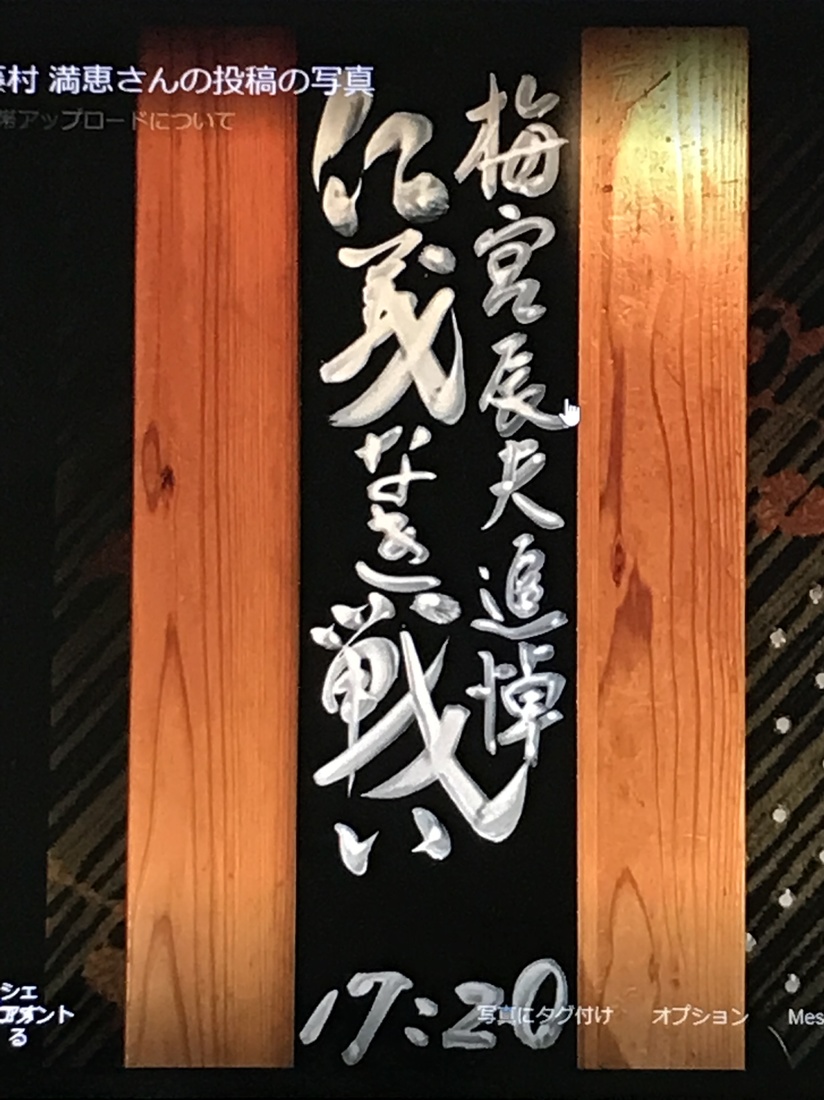 村 満恵さんの投稿の写真
アップロードについて
梅宮辰夫追悼
仁義なき戦い
17:20
シェ
る
写真にタグ付け
オプション
Mes